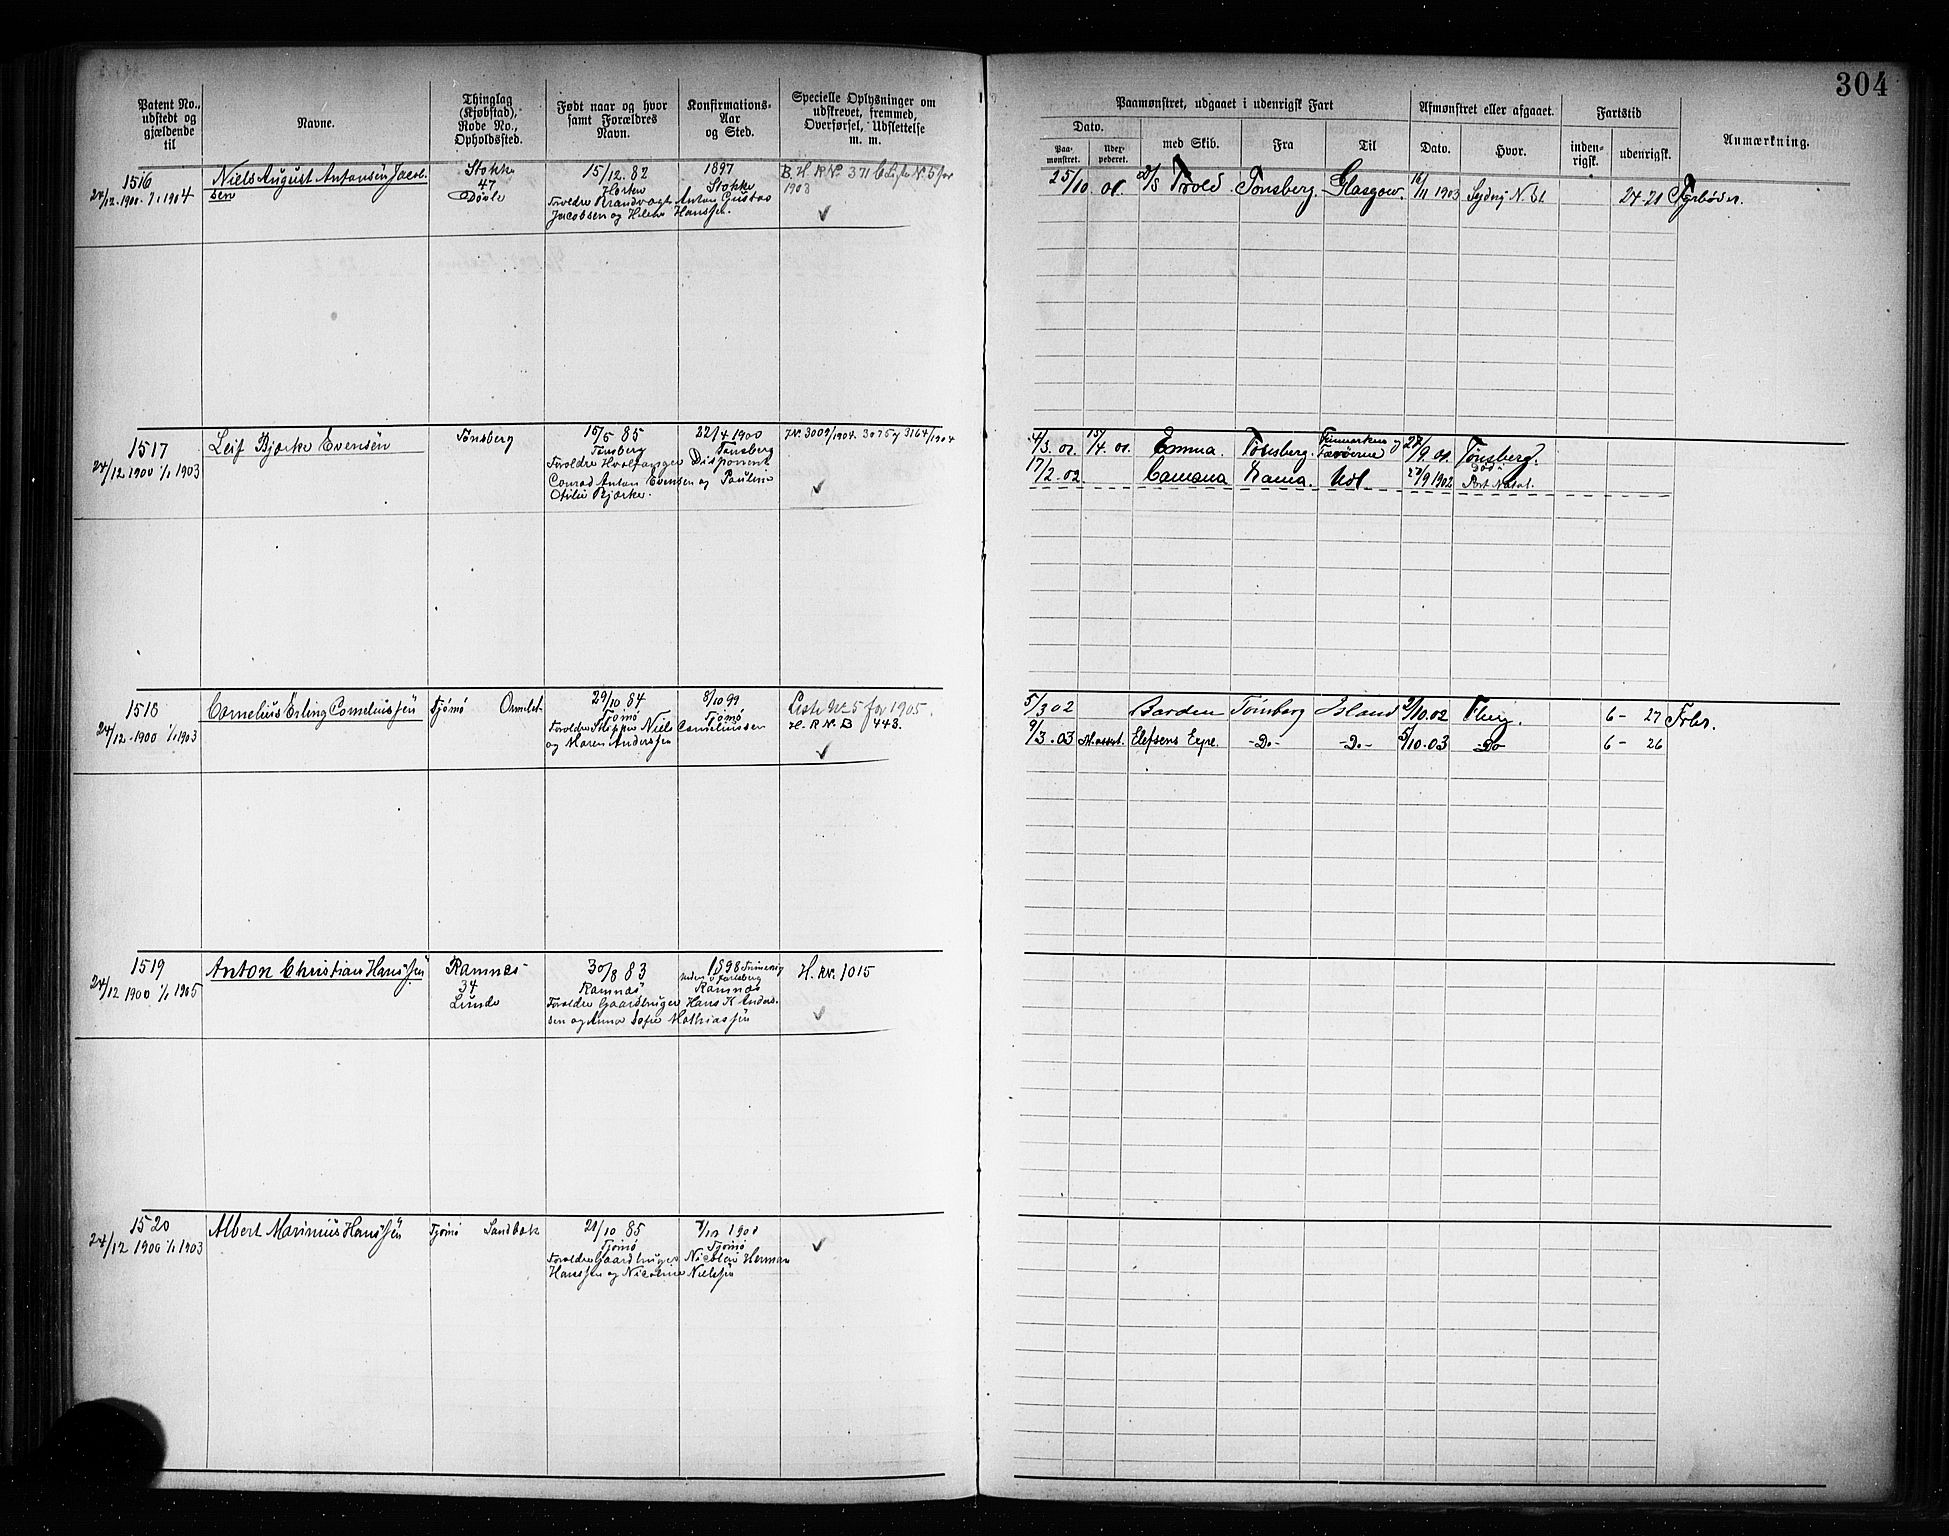 304
Patent No., udstedt og gjældende til
Navne.
Thinglag (Kjøbstad), Rode No., Opholdssted.
Født naar og hvor samt Forældres Navn.
Konfirmations-Aar og Sted.
Specielle Oplysninger om udskrevet, fremmed, Overførsel, Udslettelse m. m.
Paamønstret, udgaaet i udenrigsk Fart
Afmønstret eller afgaaet.
Fartstid
Anmærkning.
Dato.
med Skib.
Fra
Til
Dato.
Hvor.
inden-rigsk.
udenrigsk.
Paa-mønstret.
1516
24/12 1900 1/1 1904
Niels August Antonsen Jacobsen
Stokke
47
15/12. 82
Forældre Brandvagt Anton Gustav
Jacobsen og Hanssen.
1897
Stokke
B. H. R No. 371 No 5 for
1903
25/10 01. Trold Tønsberg. Glasgow. 16/11 1903 24-21
1517
24/12 1900 1/1 1903
Leif Bjerke Evensen
Tønsberg
15/5 85
Tønsberg
Forældre Hvalfanger Disponent
Conrad Anton Evensen og Pauline
Otilie Bjerke.
22/4 1900
Tønsberg
No. 3009/1904. 3075 og 3164/1904
4/3. 01. 15/4. 01. Emma. Tønsberg. Finmarken og Færøerne 27/9. 01. Tønsberg.
17/2. 02 27/9 1902 Port Natal.
1518
24/12 1900 1/1 1903
Cornelius Erling Corneliussen
Tjømø Ormelet
29/10 84
Tjømø
Forældre Skipper Niels Corneliussen
og Maren Anderssen
8/10 99
Tjømø
Liste No 5 for 1905.
H. R. No. B 443.
5/3 02 Barden Tønsberg Island 2/10. 02 Tberg. 6 - 27
9/3. 03 Elefsens Expe. -Do- -Do- 5/10. 03 -Do- 6 - 26
1519
24/12 1900 1/1 1905
Anton Christian Hanssen
Ramnes
34
Linde
30/8 83
Ramnæs
Forældre Gaardbruger Hans K Andersen
og Anna Sofie Mathiassen
1898
Ramnæs
H. R No. 1015
1520
24/12 1900 1/1 1903
Albert Marinius Hanssen
Tjømø Sandbæk
21/10 85
Tjømø
Forældre Gaardbruger Nicolai Herman
Hanssen og Nicoline Nielsen
7/10 1900
Tjømø